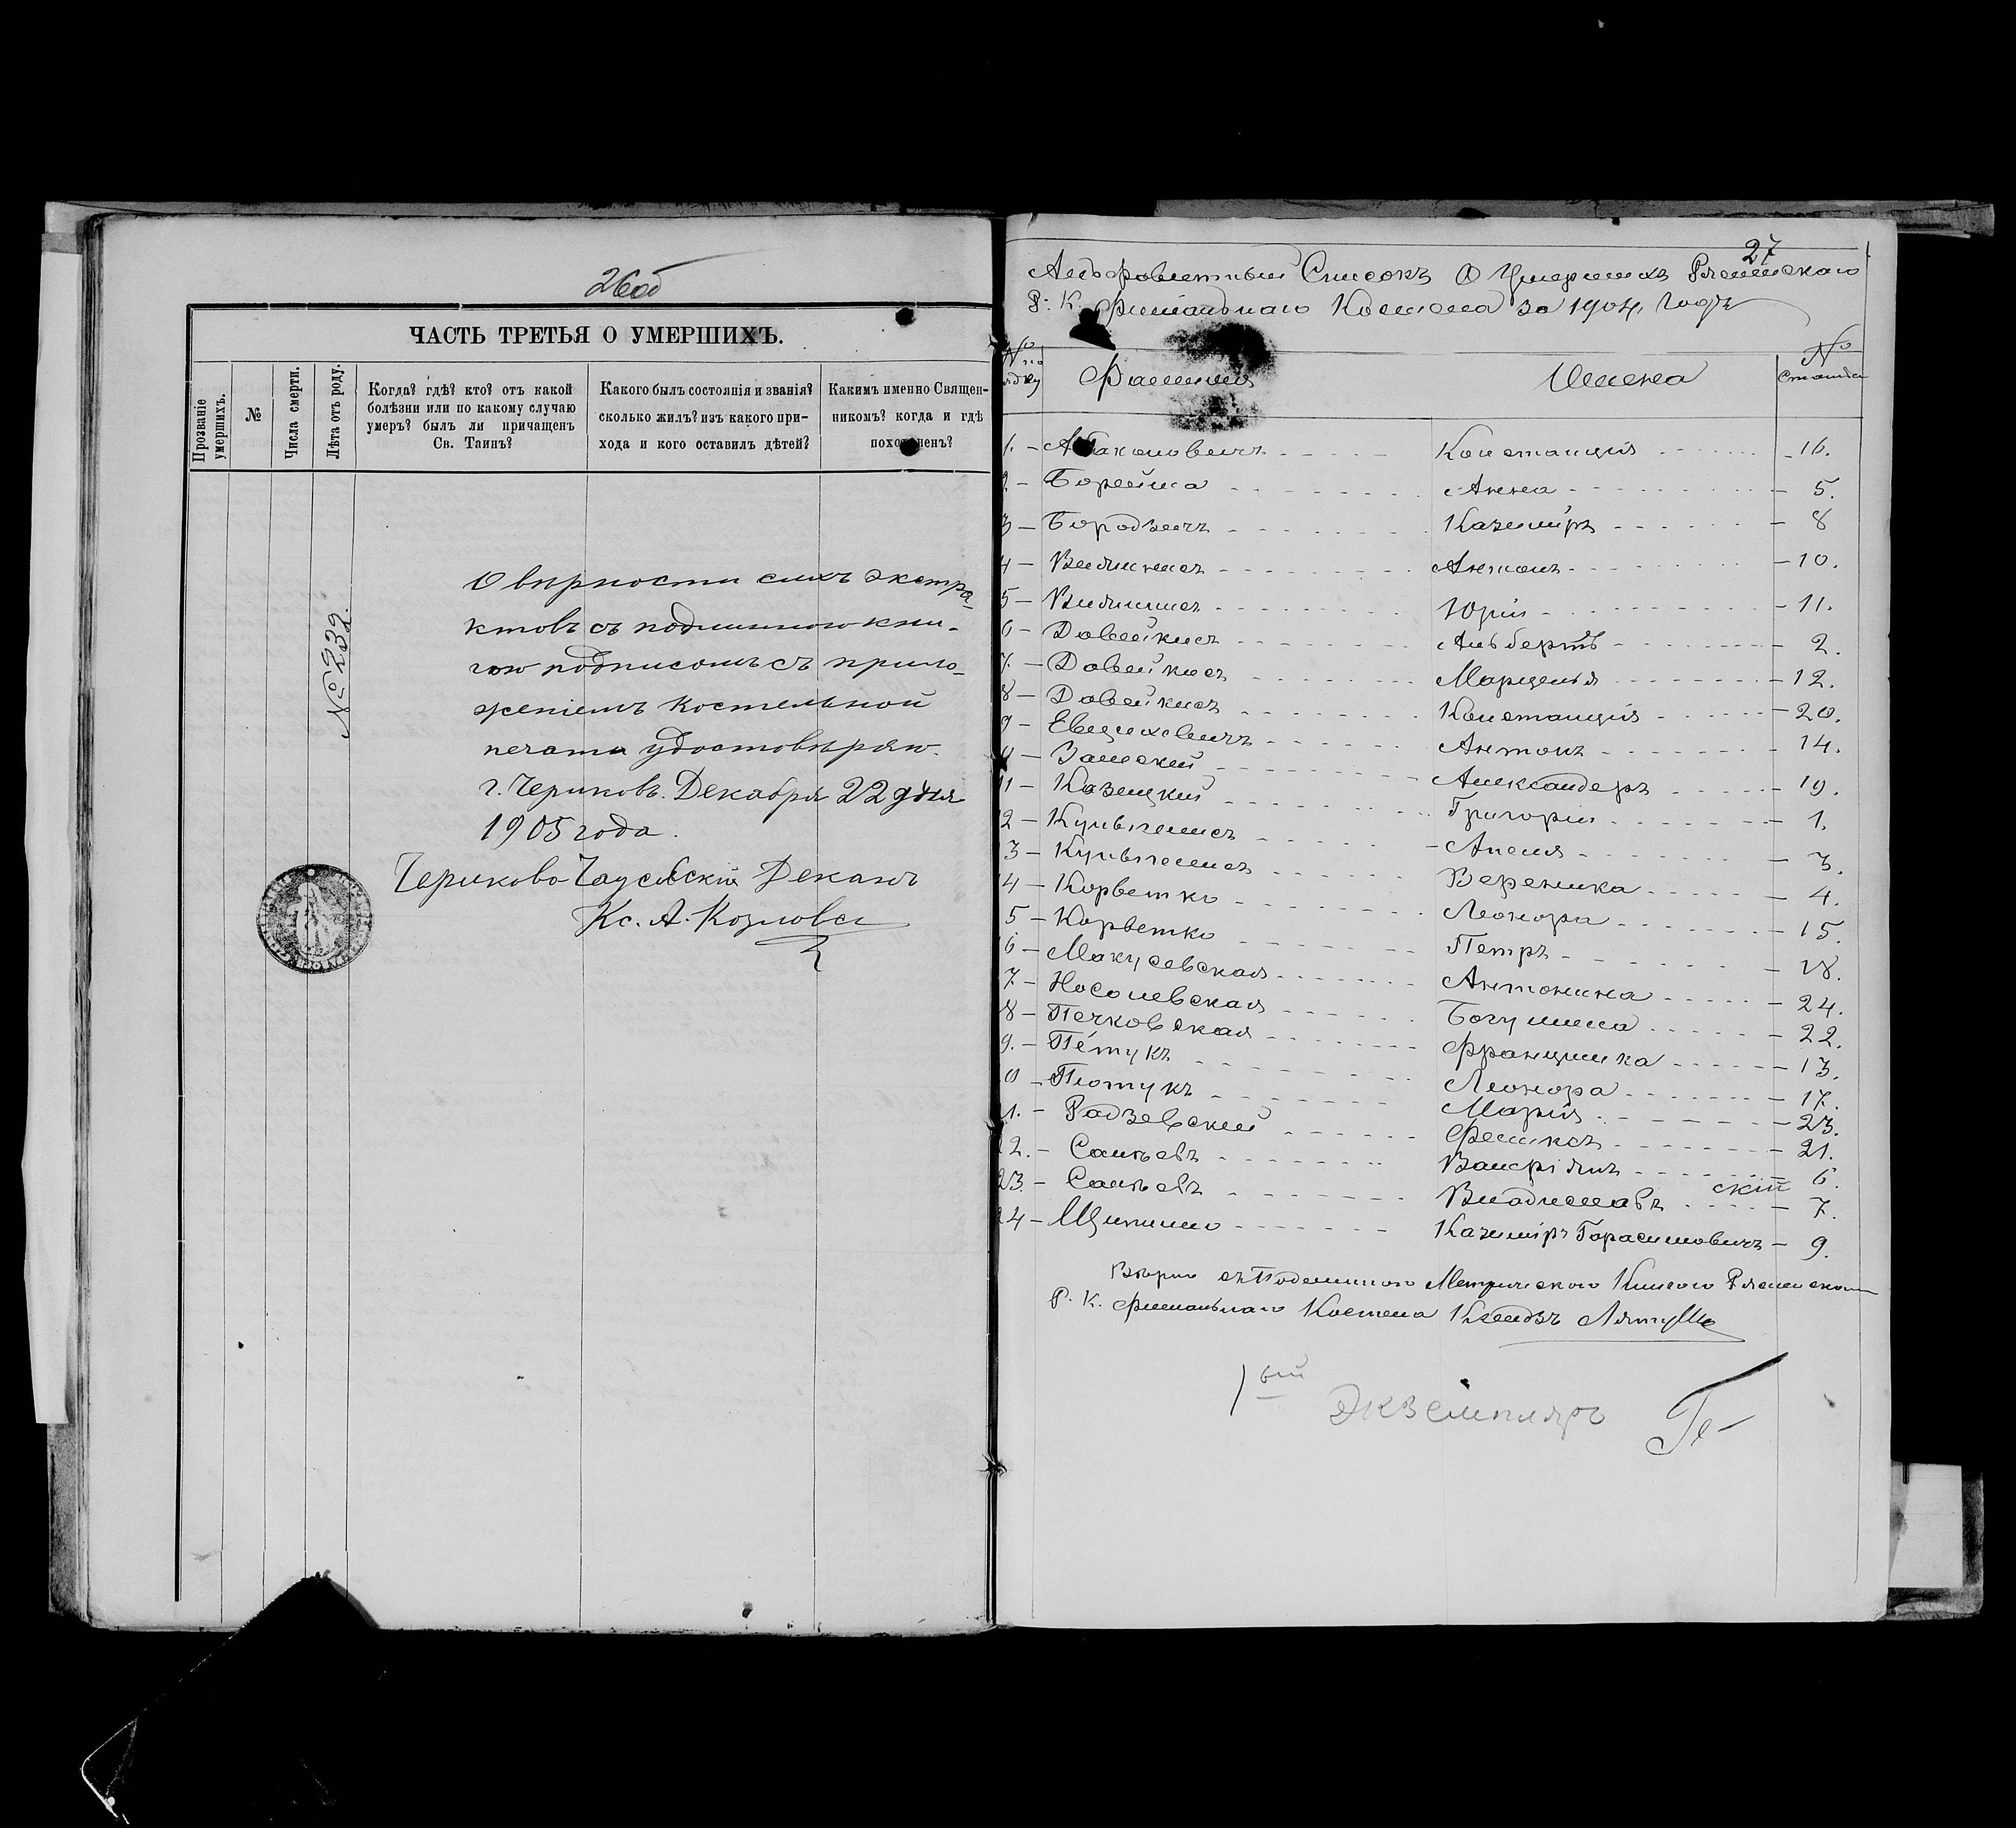 26об
ЧАСТЬ ТРЕТЬЯ О УМЕРШИХЪ.
Прозваніе умершихъ.
№
Числа смерти.
Лѣта отъ роду.
Когда? гдѣ? кто? отъ какой
болѣзни или по какому случаю
умеръ? былъ ли причащенъ
Св. Таинъ?
Какого былъ состоянія и званія?
сколько жилъ? изъ какого при-
хода и кого оставилъ дѣтей?
Какимъ именно Священ-
никомъ? когда и гдѣ
похороненъ?
№ 232.
О вѣрности сихъ экстра-
ктовъ съ подлинною кни-
гою подписомъ съ прило-
женіемъ костельной
печати удостовѣряю.
г. Чериковъ. Декабря 22 дня
1905 года.
Чериково-Чаусвскій Деканъ
Кс. А. Козловск
27
Альфаветный Списокъ О Умершихъ Рясненскаго
Р. К. Филіальнаго Костела за 1904 годъ
№ по
Фамилия
Имена
№
Статьи
1. - Абакановичъ - Констанція - 16.
2 - Борейша - Анна - 5.
3 - Бородзичъ - Казиміръ - 8
4 - Видлинисъ - Антонъ - 10.
5 - Видлинисъ - Юрій - 11.
6 - Довейкисъ - Альбертъ - 2.
7. - Довейкисъ - Марцелья - 12.
8 - Довейкисъ - Констанція - 20.
9 - Евцихевичъ - Антонъ - 14.
Замский - Александеръ - 19.
11 - Казецкий - Григорій - 1.
2 - Кульвелисъ - Анеля - 3.
3 - Кульвелисъ - Вереника - 4.
4 - Корветко - Леонора - 15.
5 - Корветко - Петръ - 18.
6 - Макусевская - Антонина - 24.
7. - Носолевская - Богумила - 22.
8 - Печковская - Францишка - 13.
9. - Петукъ - Леонора - 17.
0 - Пютукъ - Марія - 23.
1. - Радзевский - Феликсъ - 21.
2. - Саньевъ - Валеріянъ - 6.
23. - Саньевъ - Владиславъ - 7.
скій
24 - Щипилло - Казиміръ Герасимовичъ - 9.
Вѣрно съ Подлинною Метрическою Книгою Рясненскаго
Р. К. Филиальнаго Костела Ксендзъ
1 ый
Экземпляръ